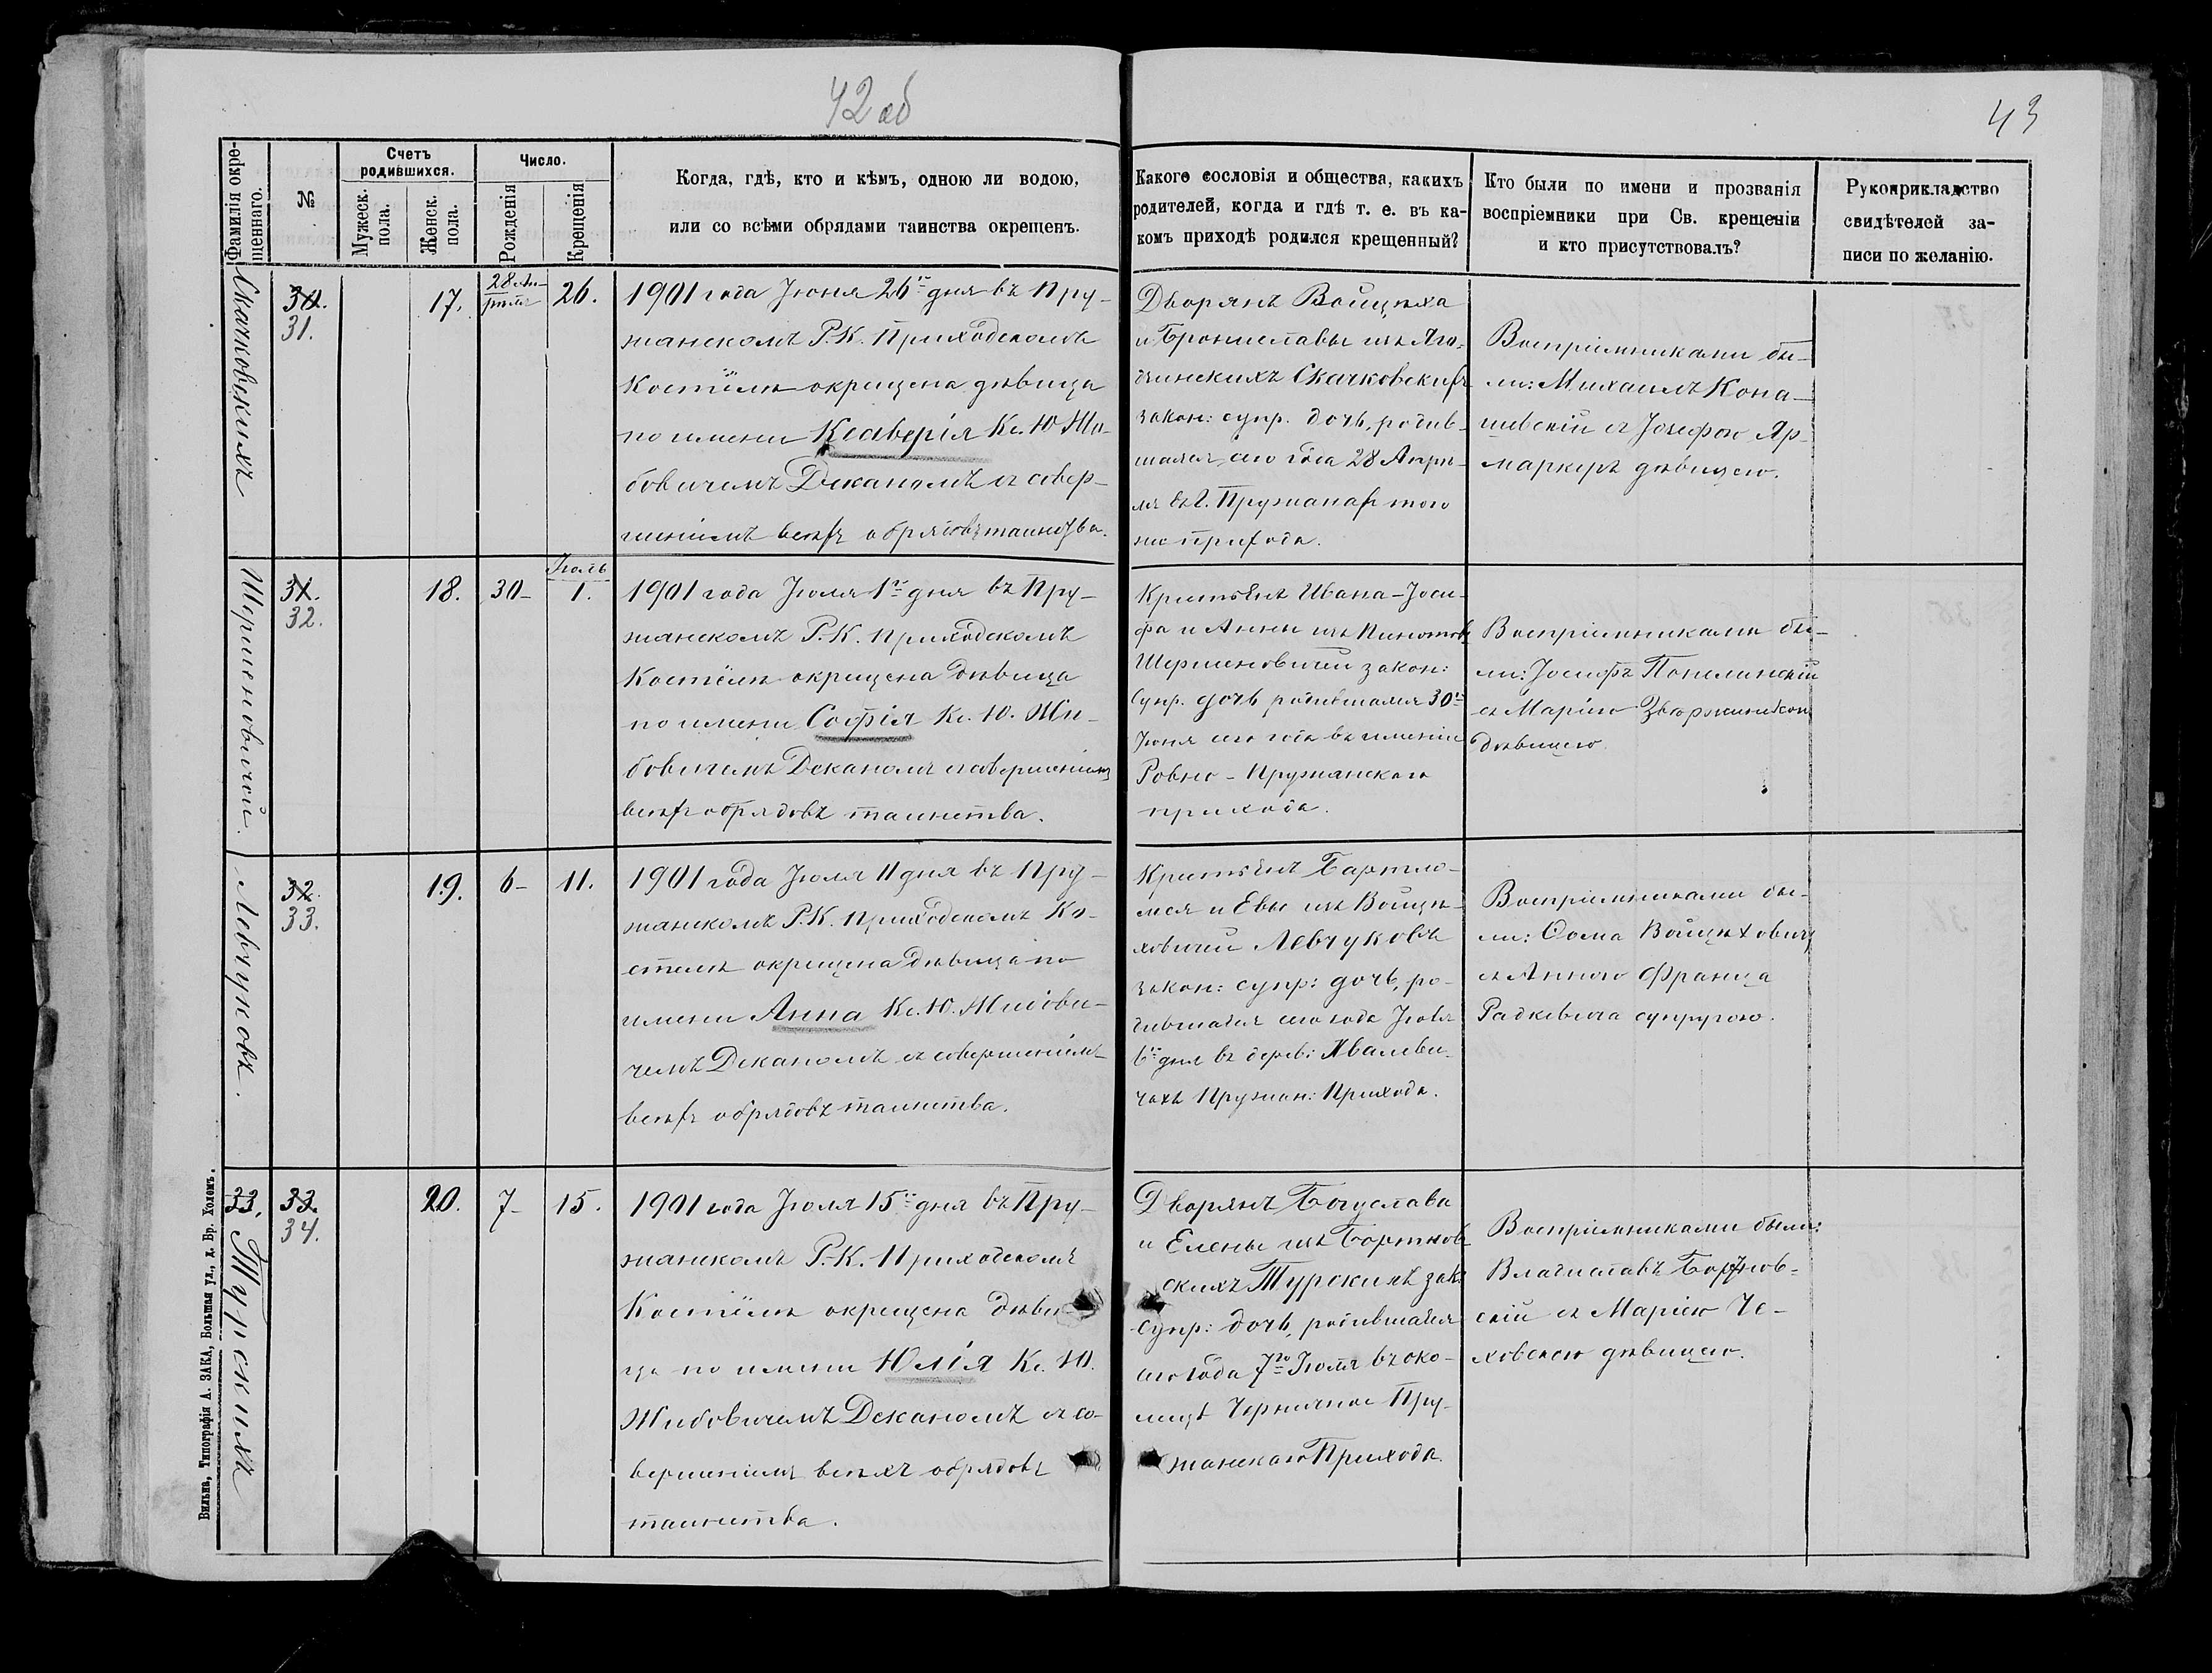 42 об
43
Фамилія окре-
щеннаго.
№
Счетъ
родившихся.
Мужеск.
пола.
Женск.
пола.
Число.
Рожденія
Крещенія
Когда, гдѣ, кто и кѣмъ, одною ли водою,
или со всѣми обрядами таинства окрещенъ.
Какого сословія и общества, какихъ
родителей, когда и гдѣ т. е. въ ка-
комъ приходѣ родился крещенный?
Кто были по имени и прозванія
воспріемники при Св. крещеніи
и кто присутствовалъ?
Рукоприкладство
свидѣтелей за-
писи по желанію.
Скачковскихъ
30.
31.
17.
28 Ап-
рѣля
26.
1901 года Іюня 26го дня въ Пру-
жанскомъ Р.К. Приходскомъ
Костёлѣ окрещена дѣвица
по имени Ксаверія Кс. Ю. Жи-
бовичемъ Деканомъ съ совер-
шеніемъ всѣхъ обрядовъ таинства.
Дворянъ Войцѣха
и Брониславы изъ
Скачковскихъ
закон: супр. дочь, родив-
шаяся сего года 28 Апрѣ-
ля въ г. Пружанахъ того
же прихода.
Воспріемниками бы-
ли: Михаилъ Кона-
шевскій съ Іозефою Яр-
маркеръ дѣвицею.
Шершеновичей.
31.
32.
18.
30-
Іюль
1.
1901 года Іюля 1го дня въ Пру-
жанскомъ Р.-К. приходскомъ
Костёлѣ окрещена дѣвица
по имени Софія Кс. Ю. Жи-
бовичемъ Деканомъ съ совершеніемъ
всѣхъ обрядовъ таинства.
Крестьянъ Ивана-Іоси-
фа и Анны изъ
Шершеновичей закон:
супр. дочь родившаяся 30го
Іюня сего года въ имѣніи
Ровно-Пружанскаго
прихода.
Воспріемниками бы-
ли: Іосифъ Попелинскій
съ Маріею
дѣвицею
Левчуковъ.
32.
33.
19.
6-
11.
1901 года Іюля 11 дня въ Пру-
жанскомъ Р.К. приходскомъ Ко-
стелѣ окрещена дѣвица по
имени Анна Кс. Ю. Жибови-
чемъ Деканомъ съ совершеніемъ
всѣхъ обрядовъ таинства.
Крестьянъ Бартло-
мея и Евы изъ Войцѣ-
ховичей Левчуковъ
закон: супр: дочь, ро-
дившаяся сего года Іюля
6го дня въ дерев: Хвалеви-
чахъ Пружан: Прихода.
Воспріемниками бы-
ли: Ѳома Войцѣховичъ
съ Анною Франца
Радкевича супругою.
33. Турскихъ
33.
34.
20.
7-
15.
1901 года Іюля 15го дня въ Пру-
жанскомъ Р.-К. Приходскомъ
Костёлѣ окрещена дѣви-
ца по имени Юлія Кс. Ю.
Жибовичемъ Деканомъ съ со-
вершеніемъ всѣхъ обрядовъ
таинства.
Дворянъ Богуслава
и Елены изъ Бортнов-
скихъ Турскихъ зак:
супр: дочь, родившаяся
сего года 7го Іюля въ око-
лицѣ Черничное Пру-
жанскаго Прихода
Воспріемниками были:
Владиславъ Бортнов-
скій съ Маріею Че-
ховскою дѣвицею.
Вильна, Типографія А. ЗАКА, Большая ул., д. Бр. Холемъ.